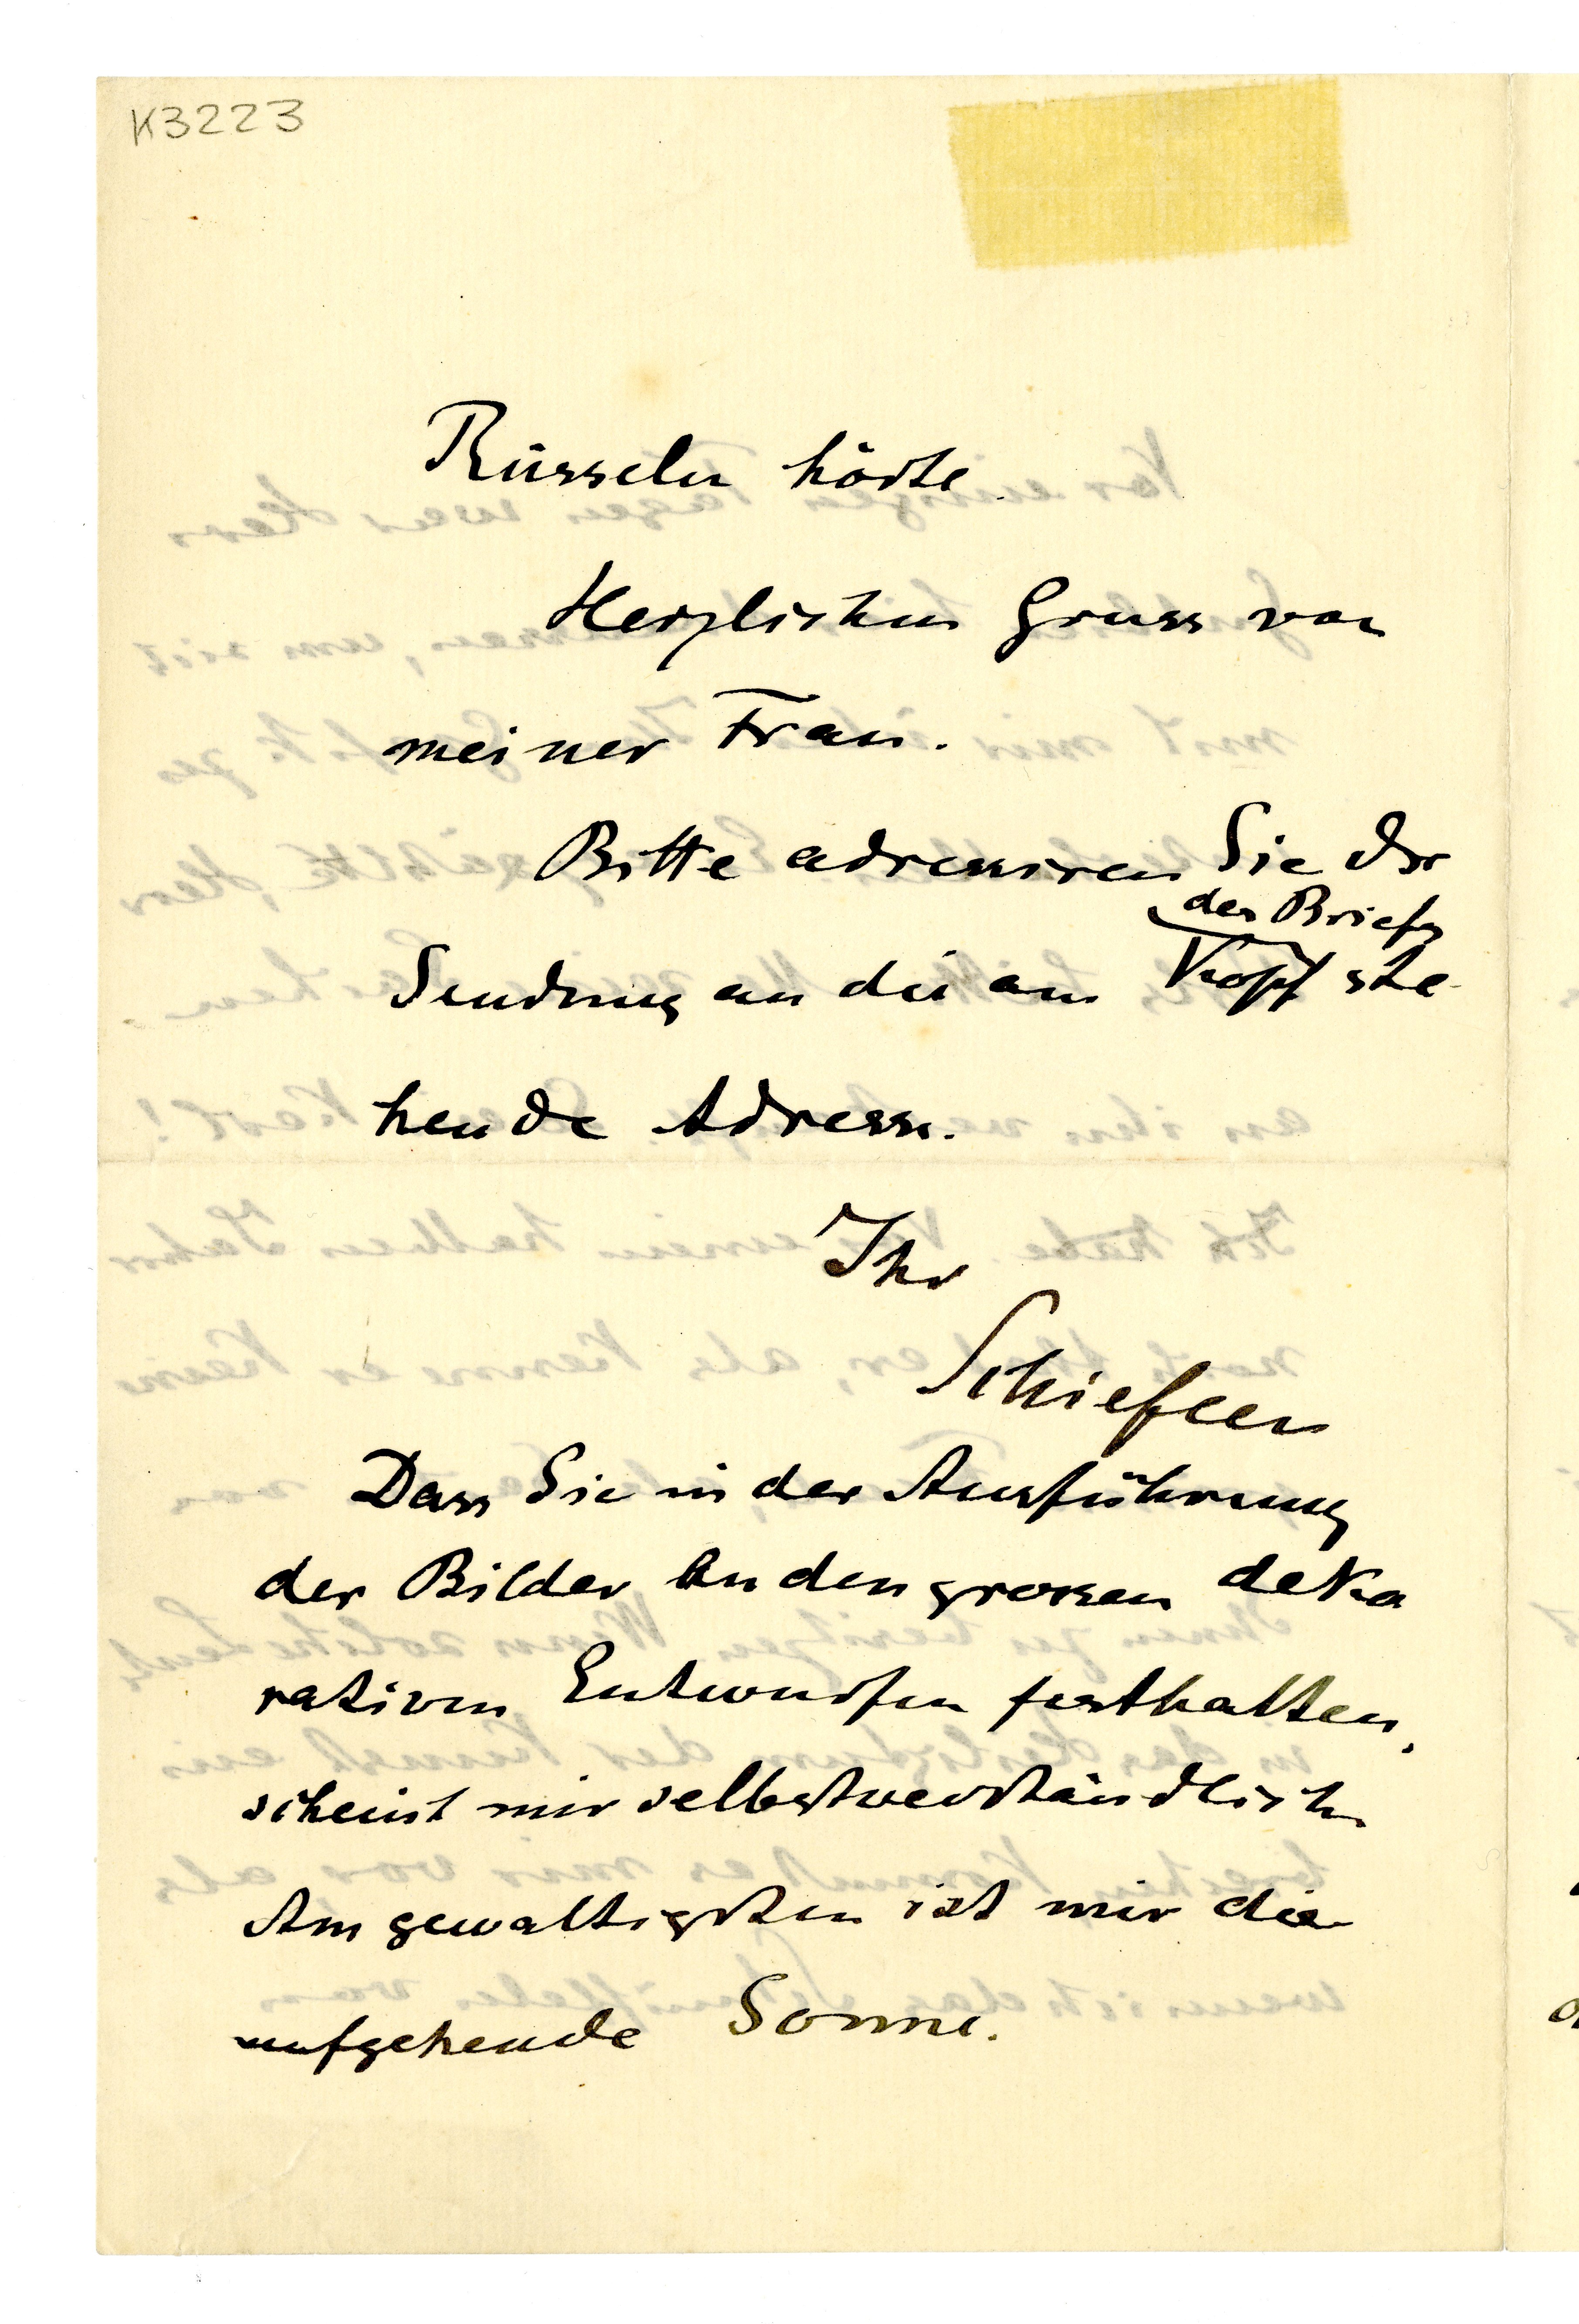 K3223
Rüsseln hörte.
Herzlichen Gruss von
meiner Frau.
Bitte adressiren Sie die
des Briefs
Sendung an die am Kopf ste
hende Adresse.
Ihr
Schiefler
Dass Sie in der Ausführung
der Bilder an den grossen deko
rativen Entwürfen festhalten,
scheint mir selbstverständlich
Am gewaltigsten ist mir die
aufgehende Sonne.